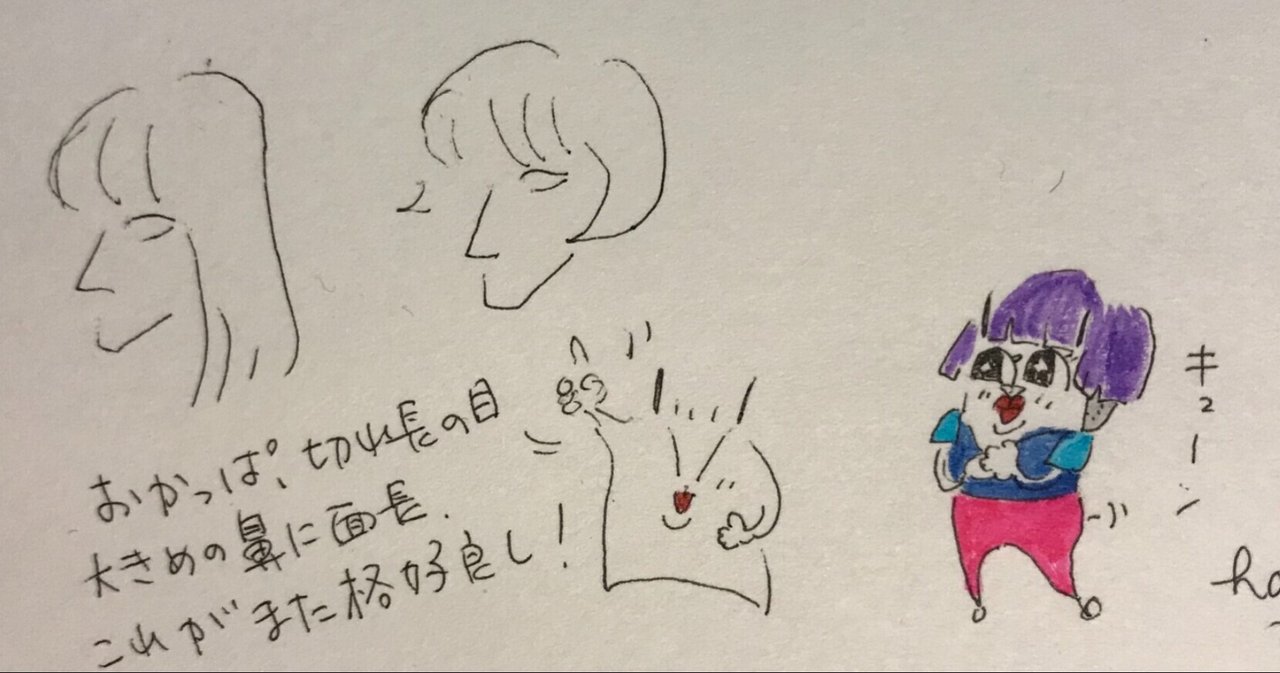 おかっぱ、切れ長の目
大きめの鼻に面長、
これがまた格好良し!
キューン